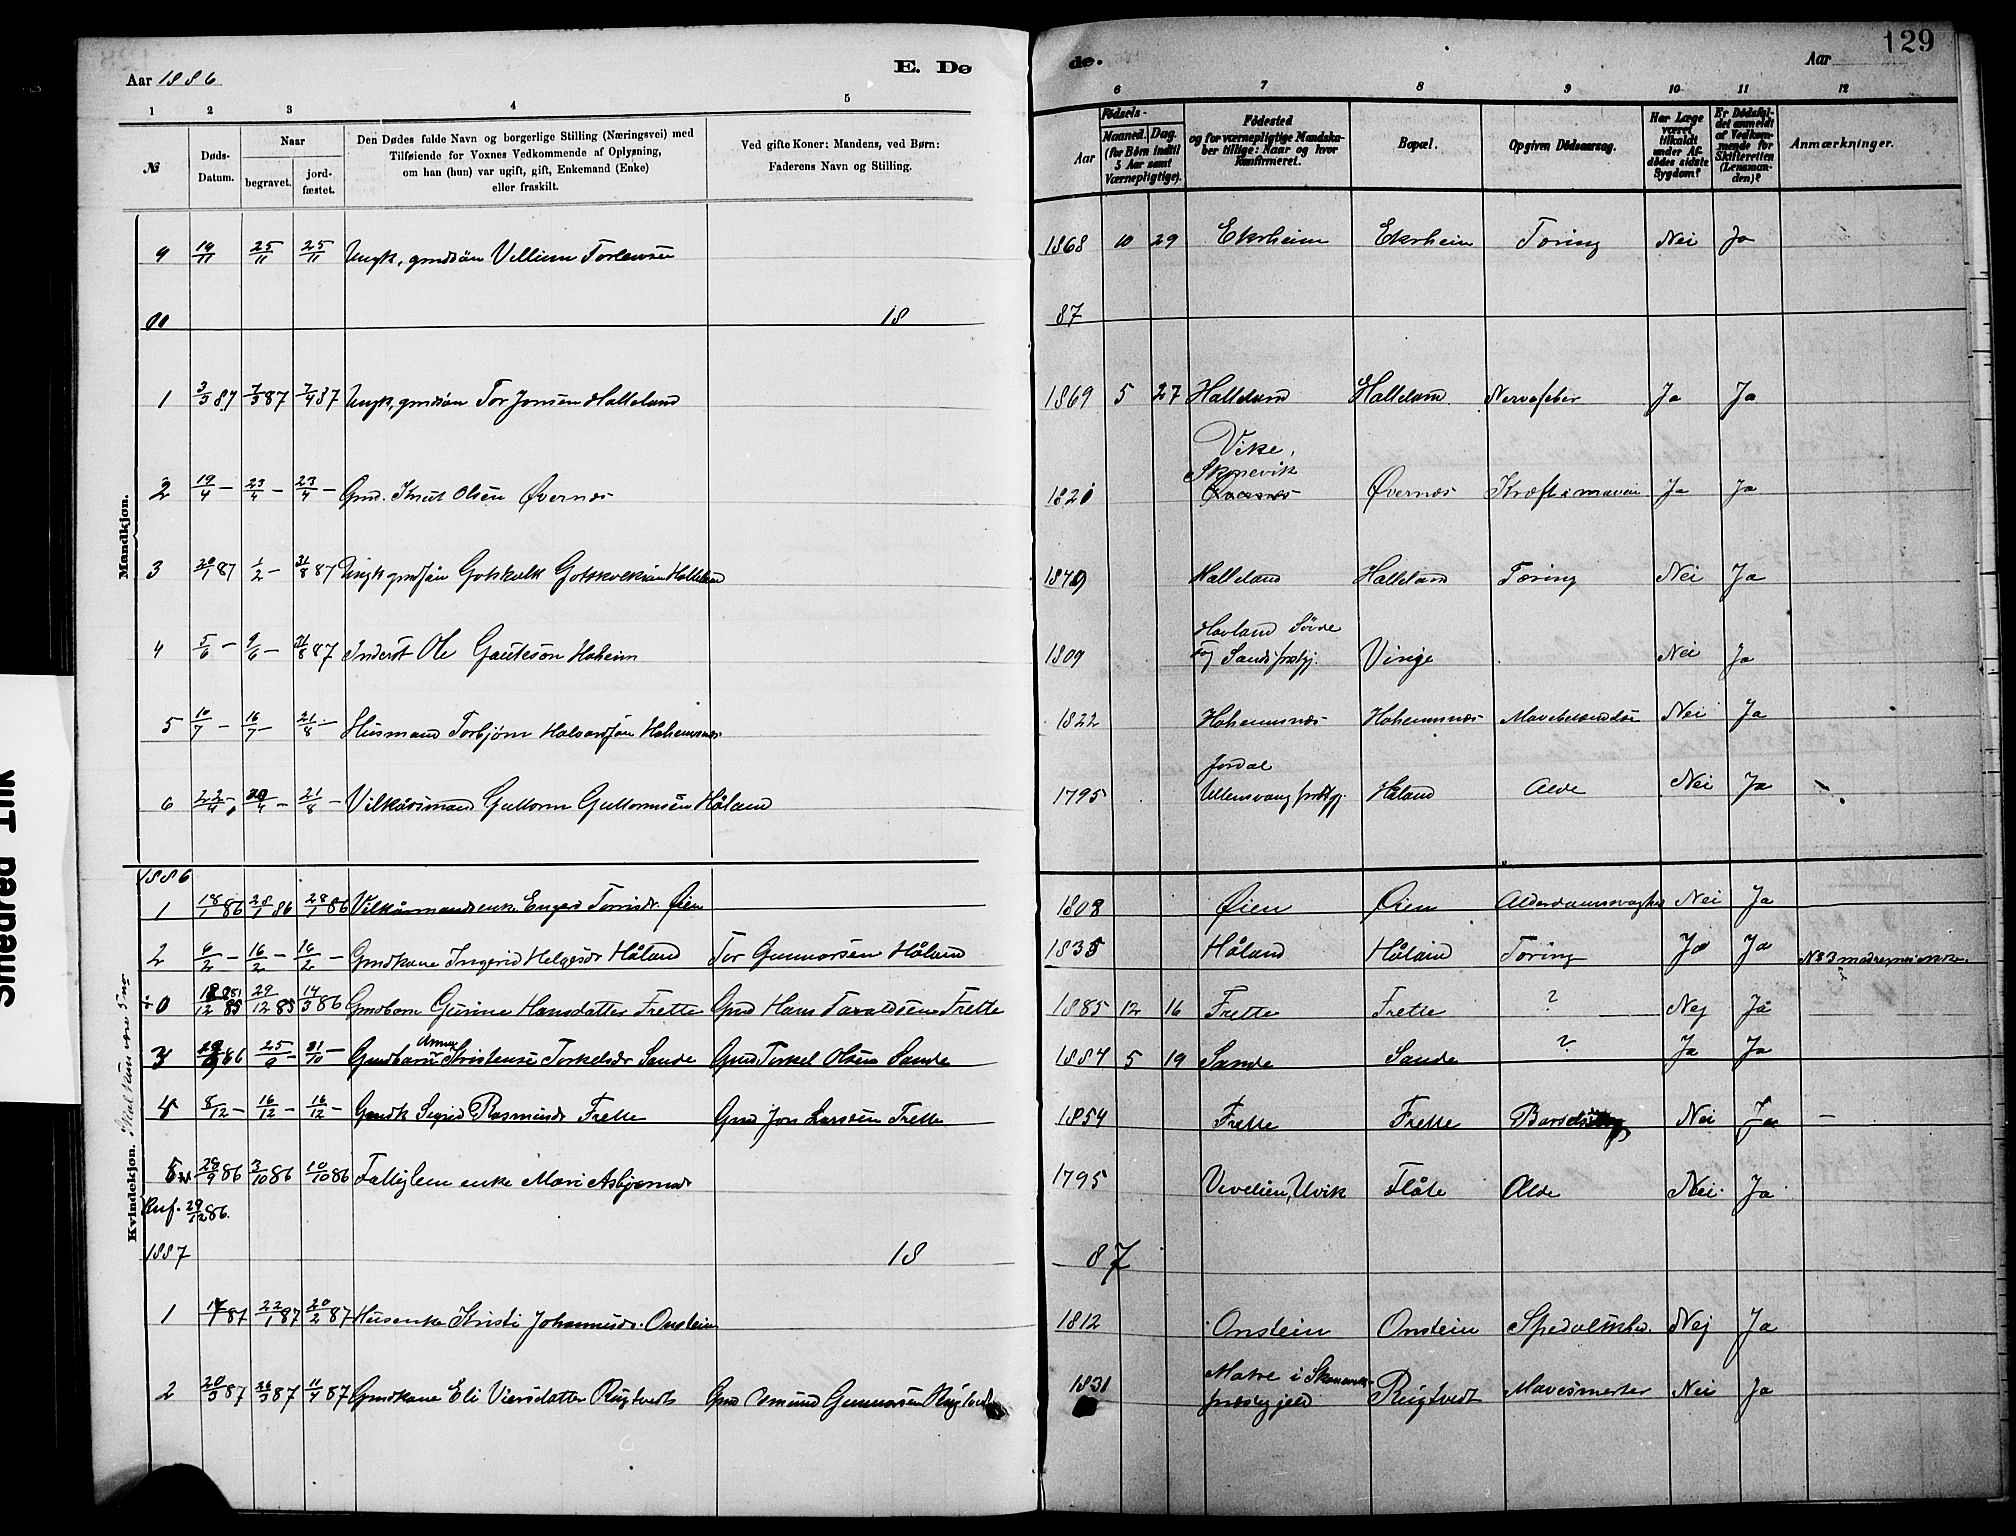 129
Aar 1886
E. Dø
de.
Aar
1 2 3 4 5 6 7 8 9 10 11 12
№
Døds-Datum.
Naar
begravet.
jord-fæstet.
Den Dødes fulde Navn og borgerlige Stilling (Næringsvei) med
Tilføiende for Voxnes Vedkommende af Oplysning,
om han (hun) var ugift, gift, Enkemand (Enke)
eller fraskilt.
Ved gifte Koner: Mandens, ved Børn:
Faderens Navn og Stilling.
Fødsels-
Aar
Maaned. Dag.
(for Børn indtil
5 Aar samt
Værnepligtige).
Fødested
og for værnepligtige Mandska-
ber tillige: Naar og hvor
konfirmeret.
Bopæl.
Opgiven Dødsaarsag.
Har Læge
været
tilkaldt
under Af-
dødes sidste
Sygdom?
Er Dødsfal-
det anmeldt
af Vedkom-
mende for
Skifteretten
(Lensman-
den)?
Anmærkninger.
Mandkjøn.
9 19/11 25/11 25/11 Ungk, gmdsøn Villium Torleivsen 1868 10 29 Ekrheim Ekrheim Tæring Nei Ja
18 87
1 3/3 87 7/3 87 7/4 87 Ungk, gmdsøn Tor Jonsen Halleland 1869 5 27 Halleland Halleland Nervefeber Ja Ja
2 19/4 - 23/4 - 23/4 - Gmd. Knut Olsen Øvernes 1821 Vike, Skonevik Øvernes Kræft i maven Ja Ja
3 28/1 87 1/2 - 21/8 87 Ungk gmdsøn Gotskalk Gotskalksøn Halleland 1879 Halleland Halleland Tæring Nei Ja
4 5/6 - 9/6 - 21/8 87 Inderst Ole Gauteson Haheim 1809 Havland Søvde sog Sands præstgj. Vinje Nei Ja
5 10/7 - 16/7 - 21/8 - Husmand Torbjørn Halvardsøn Hahemsnes 1822 Hahemsnes Hahemsnes Nei Ja
6 22/4 - 30/4 - 21/8 - Vilkårsmand Guttorm Guttormsen Håland 1795 Jordal Ullensvang præstgj. Håland Alde Nei Ja
Kvindekjøn.
1886
1 18/1 86 28/1 86 28/1 86 Vilkårmandsenke Engers Torrisdr. Øien 1808 Øien Øien Alderdomssvaghed Nei Ja
2 6/2 - 16/2 - 16/2 - Gmdkone Ingerid Helgesdr Håland Tor Gunnarsen Håland 1835 Håland Håland Tæring Ja Ja
0 18/12 85 29/12 85 14/3 86 Gmdbarn Gurine Hansdatter Frette Gmd Hans Taraldsen Frette 1885 12 16 Frette Frette ? Nej Ja
3 86 25/9 - 31/10 - Gmdbarn Anna Kristense Torkelsdr Sande Gmd Torkel Olsen Sande 1884 5 19 Sande Sande ? Ja Ja
4 8/12 - 16/12 - 16/12 - Gmdk Sigrid Rasmusdr Frette Gmd Jon Larssen Frette 1854 Frette Frette Nei Ja -
5 28/9 86 3/10 86 10/10 86 Fattiglem enke Mari Asbjørnsdr 1795 Vivelien, Ulvik Flåte Alde Nei Ja
Anf. 29/12 86.
1887 18 87
1 14/1 87 22/1 87 20/2 87 Husenke Kristi Johannisdr. Onstein 1812 Onstein Onstein Spedalskhed. Nej Ja
2 20/3 87 26/3 87 11/4 87 Gmdkone Eli Viersdatter Rügtvedt Gmd Omund Gunnarsen Rügtvedt 1831 Matre i Skonevik præstegjeld Rügtvedt Mavesmerter Nei Ja